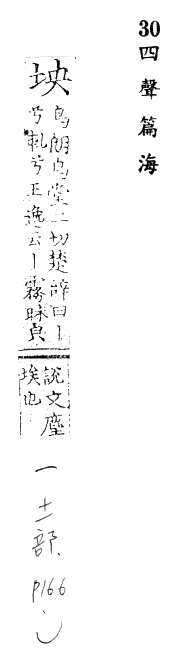 30四聲篇海
坱
烏朗烏堂二切楚辞曰丨
兮軋兮王逸云丨霧昧皃
說文塵
埃也
一 土部 P166